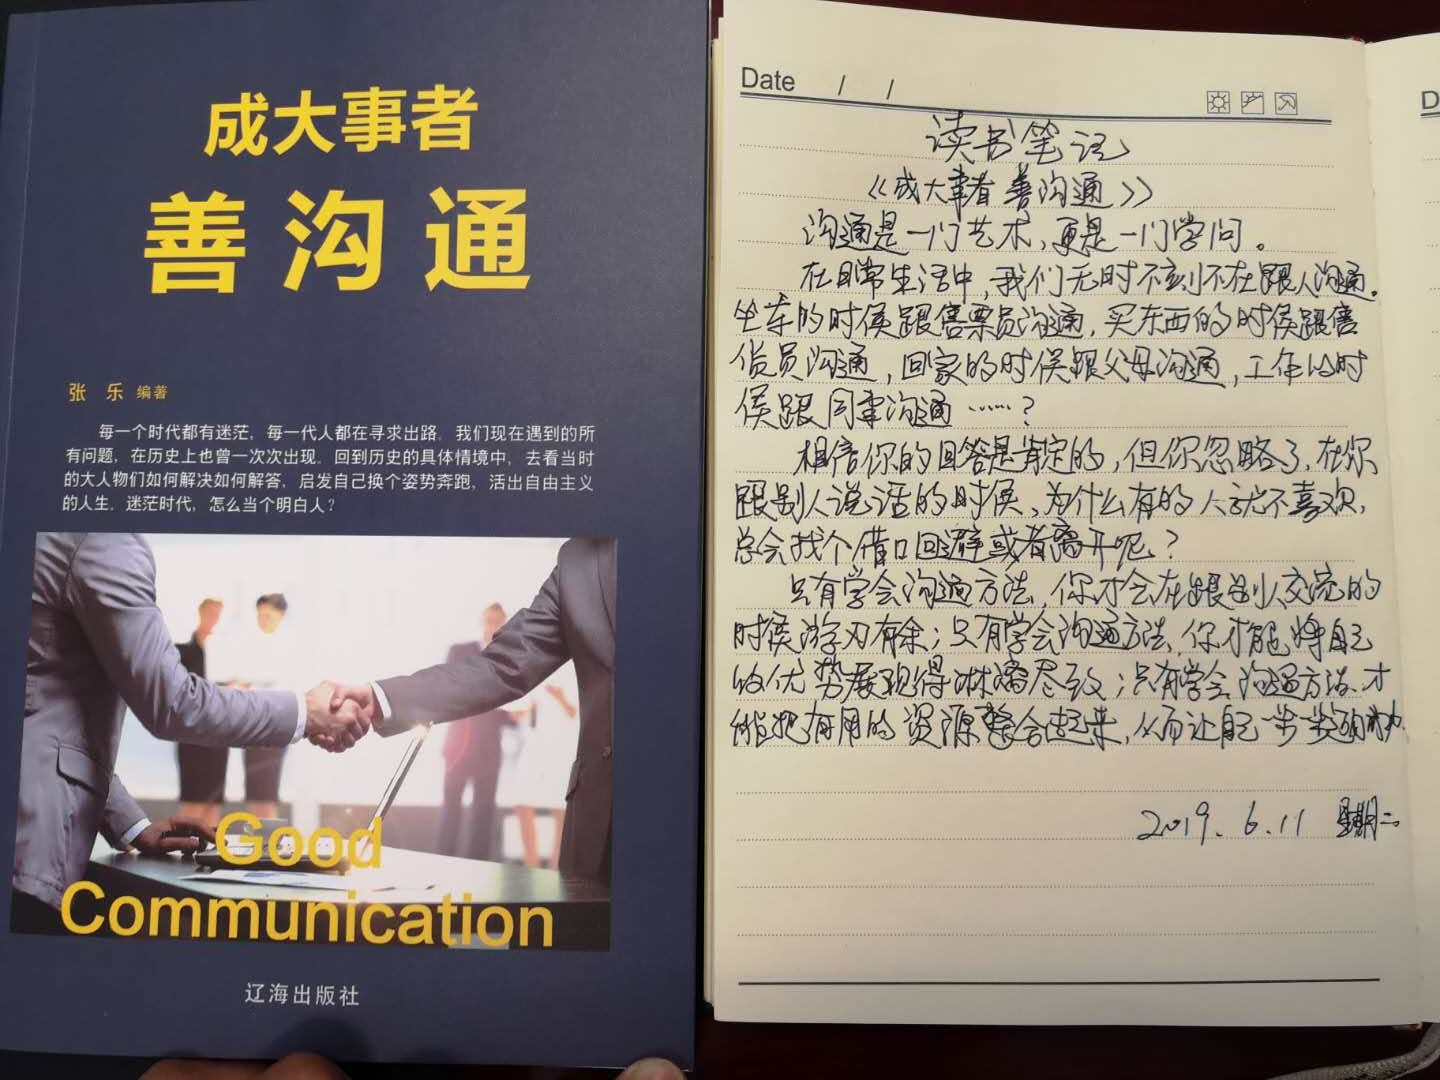 成大事者
善沟通
张 乐 编著
每一个时代都有迷茫，每一代人都在寻求出路。我们现在遇到的所
有问题，在历史上也曾一次次出现。回到历史的具体情境中，去看当时
的大人物们如何解决如何解答，启发自己换个姿势奔跑，活出自由主义
的人生。迷茫时代，怎么当个明白人？
Good
Communication
辽海出版社
Date / /
读书笔记
《成大事者善沟通》
沟通是一门艺术，更是一门学问。
在日常生活中，我们无时不刻不在跟人沟通。
坐车的时候跟售票员沟通，买东西的时候跟售
货员沟通，回家的时候跟父母沟通，工作的时
候跟同事沟通……？
相信你的回答是肯定的，但你忽略了，在你
跟别人说话的时候，为什么有的人就不喜欢，
总会找个借口回避或者离开呢？
只有学会沟通方法，你才会在跟别人交流的
时候游刃有余；只有学会沟通方法，你才能将自己
的优势展现得淋漓尽致；只有学会沟通方法，才
能把有用的资源整合起来，从而让自己一步一步
2019.6.11 星期二
D